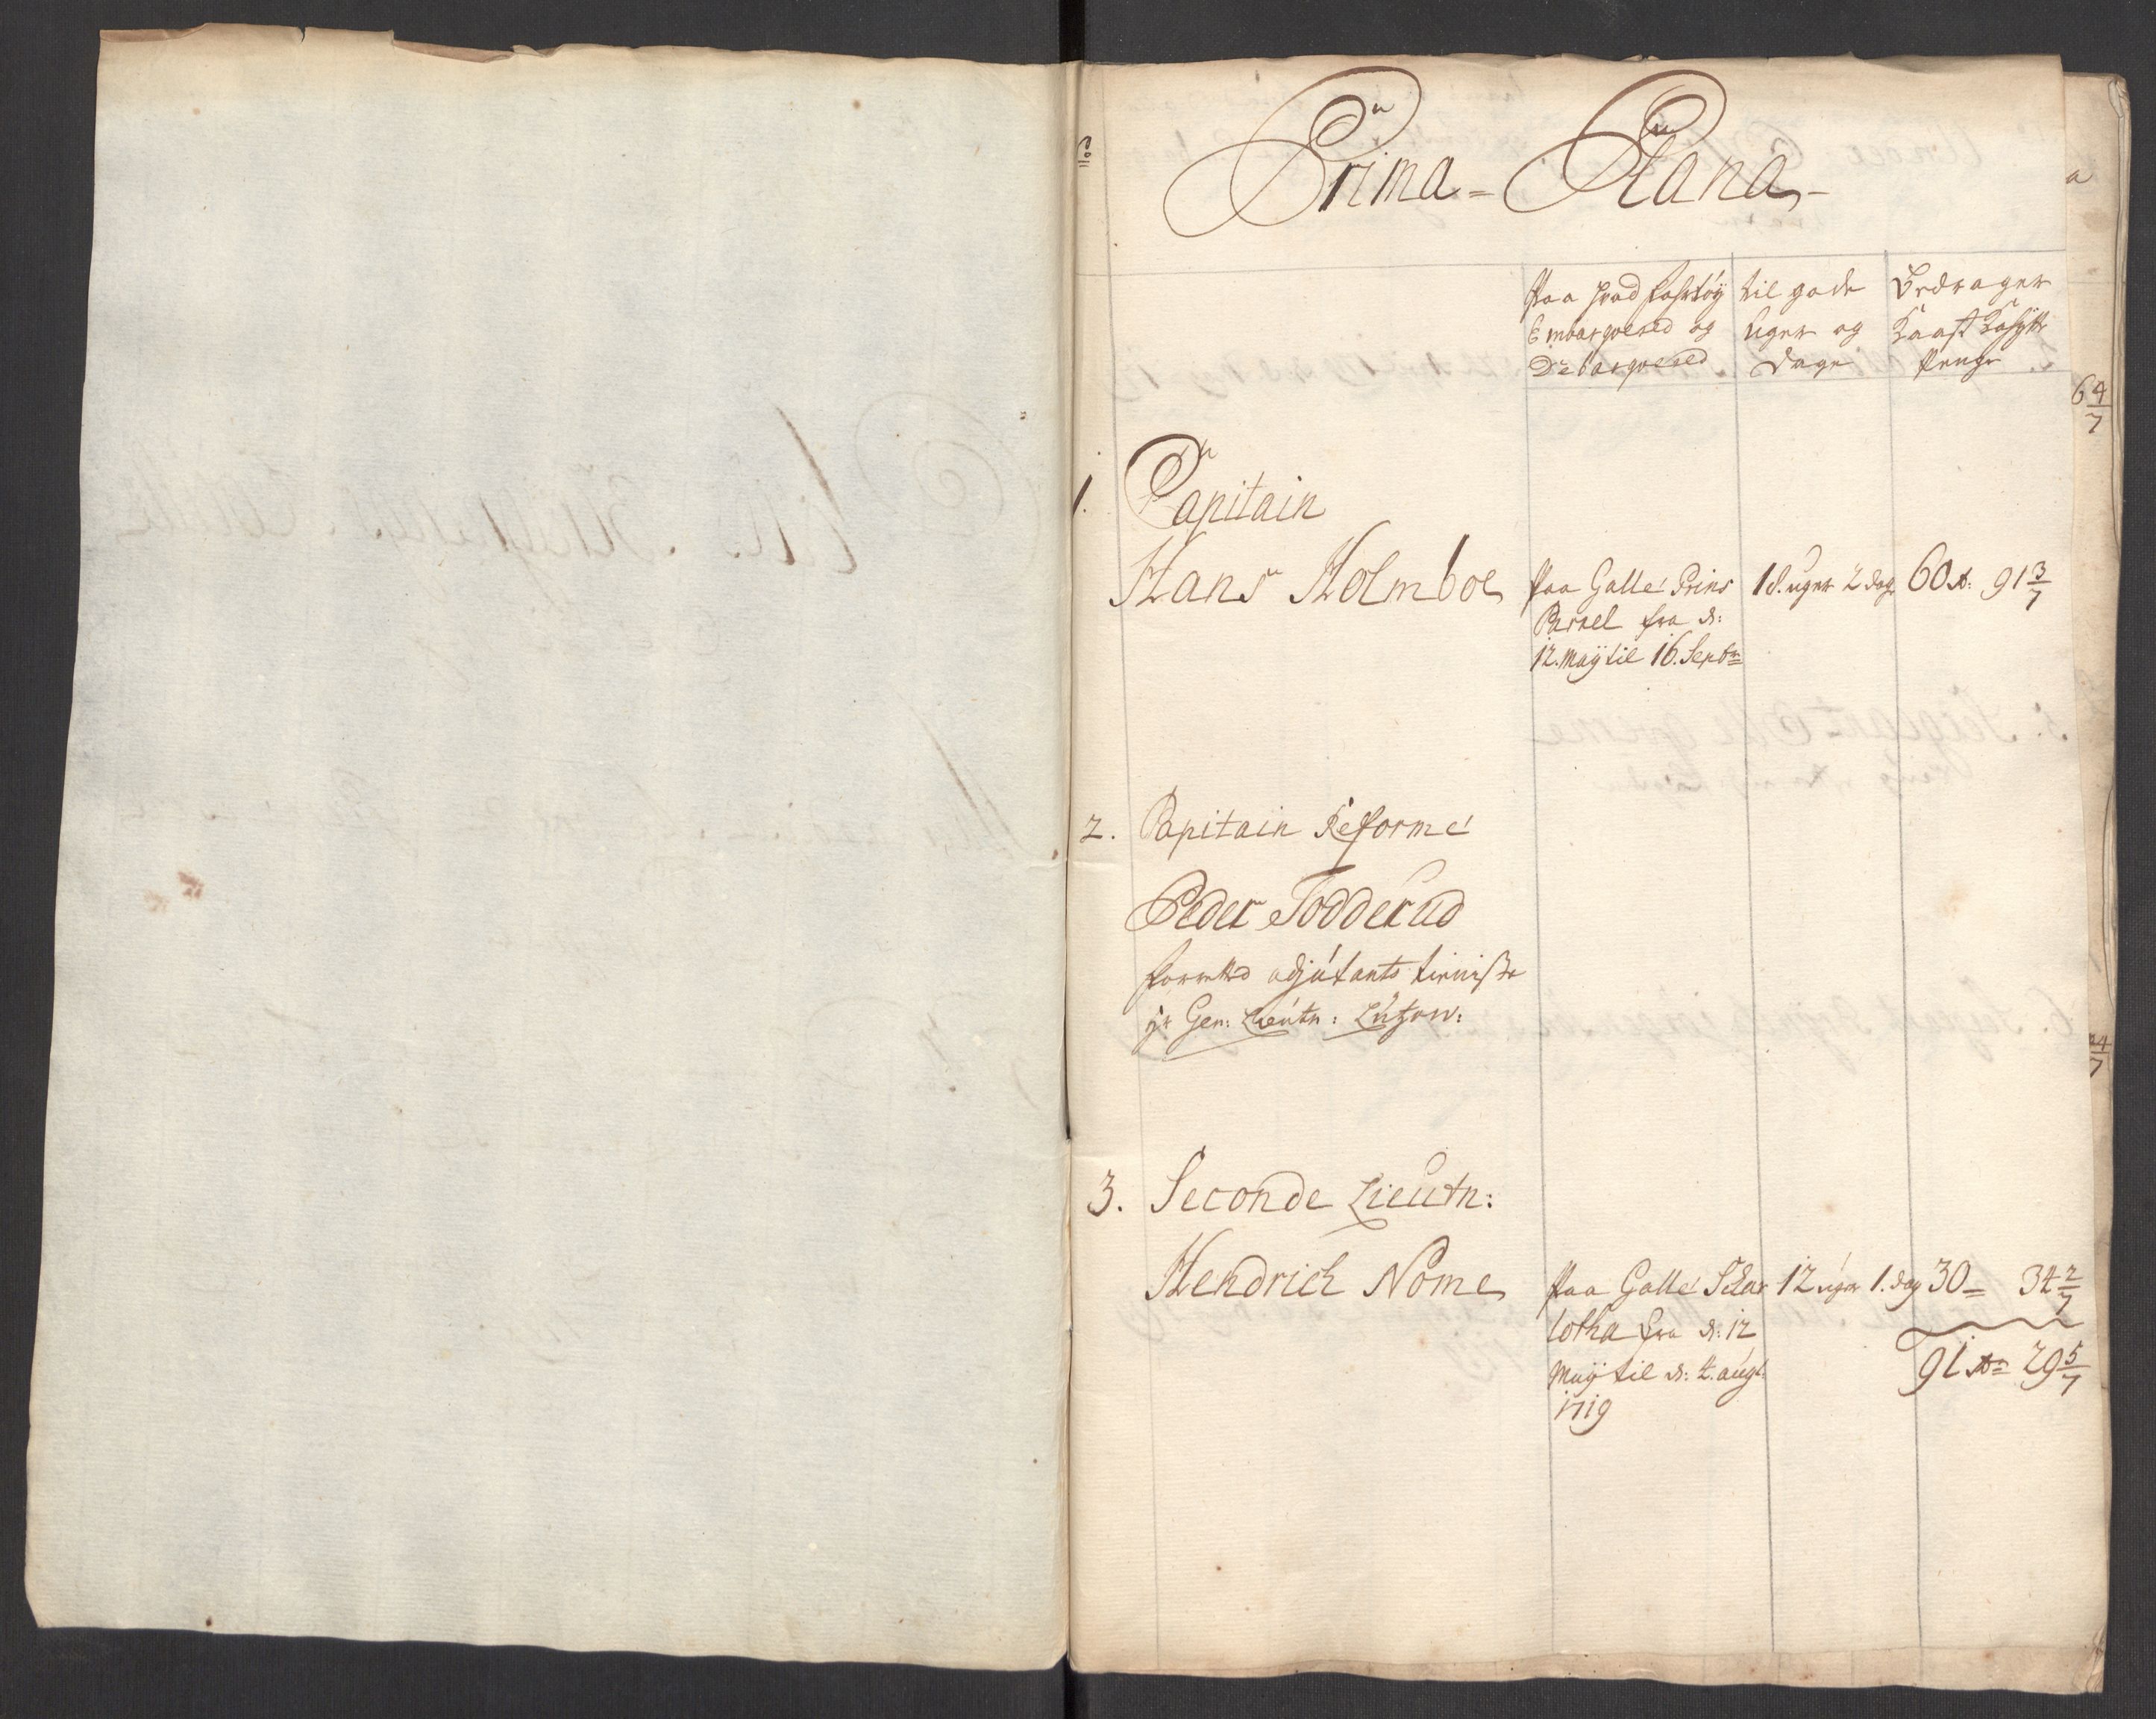 Prima - Plana -
Paa hvad fahrtøÿ
Embarqvered og
Debarqvered
til gode
Uger og
Dage
Bedrager
Kaast
Penge
1. Capitain
Hans Holmboe
Paa Galle: Prins
Carael fra d:
12. Maÿ til 16. Septr
18. uger 2 dag
60 rd: 91 3/7
2. Capitain Reformé
Peder Todderud
forretted adjutants tienniste
Gen: Lieutn: Lützow:
3. Seconde Lieutn:
Hendrich Nome
Paa Galle: Schar
lotha fra d: 12
Maÿ til d: 4. augt:
1719
12 uger 1. dag
30 = 34 2/7
91 rd = 29 5/7
6 4/7
4/7